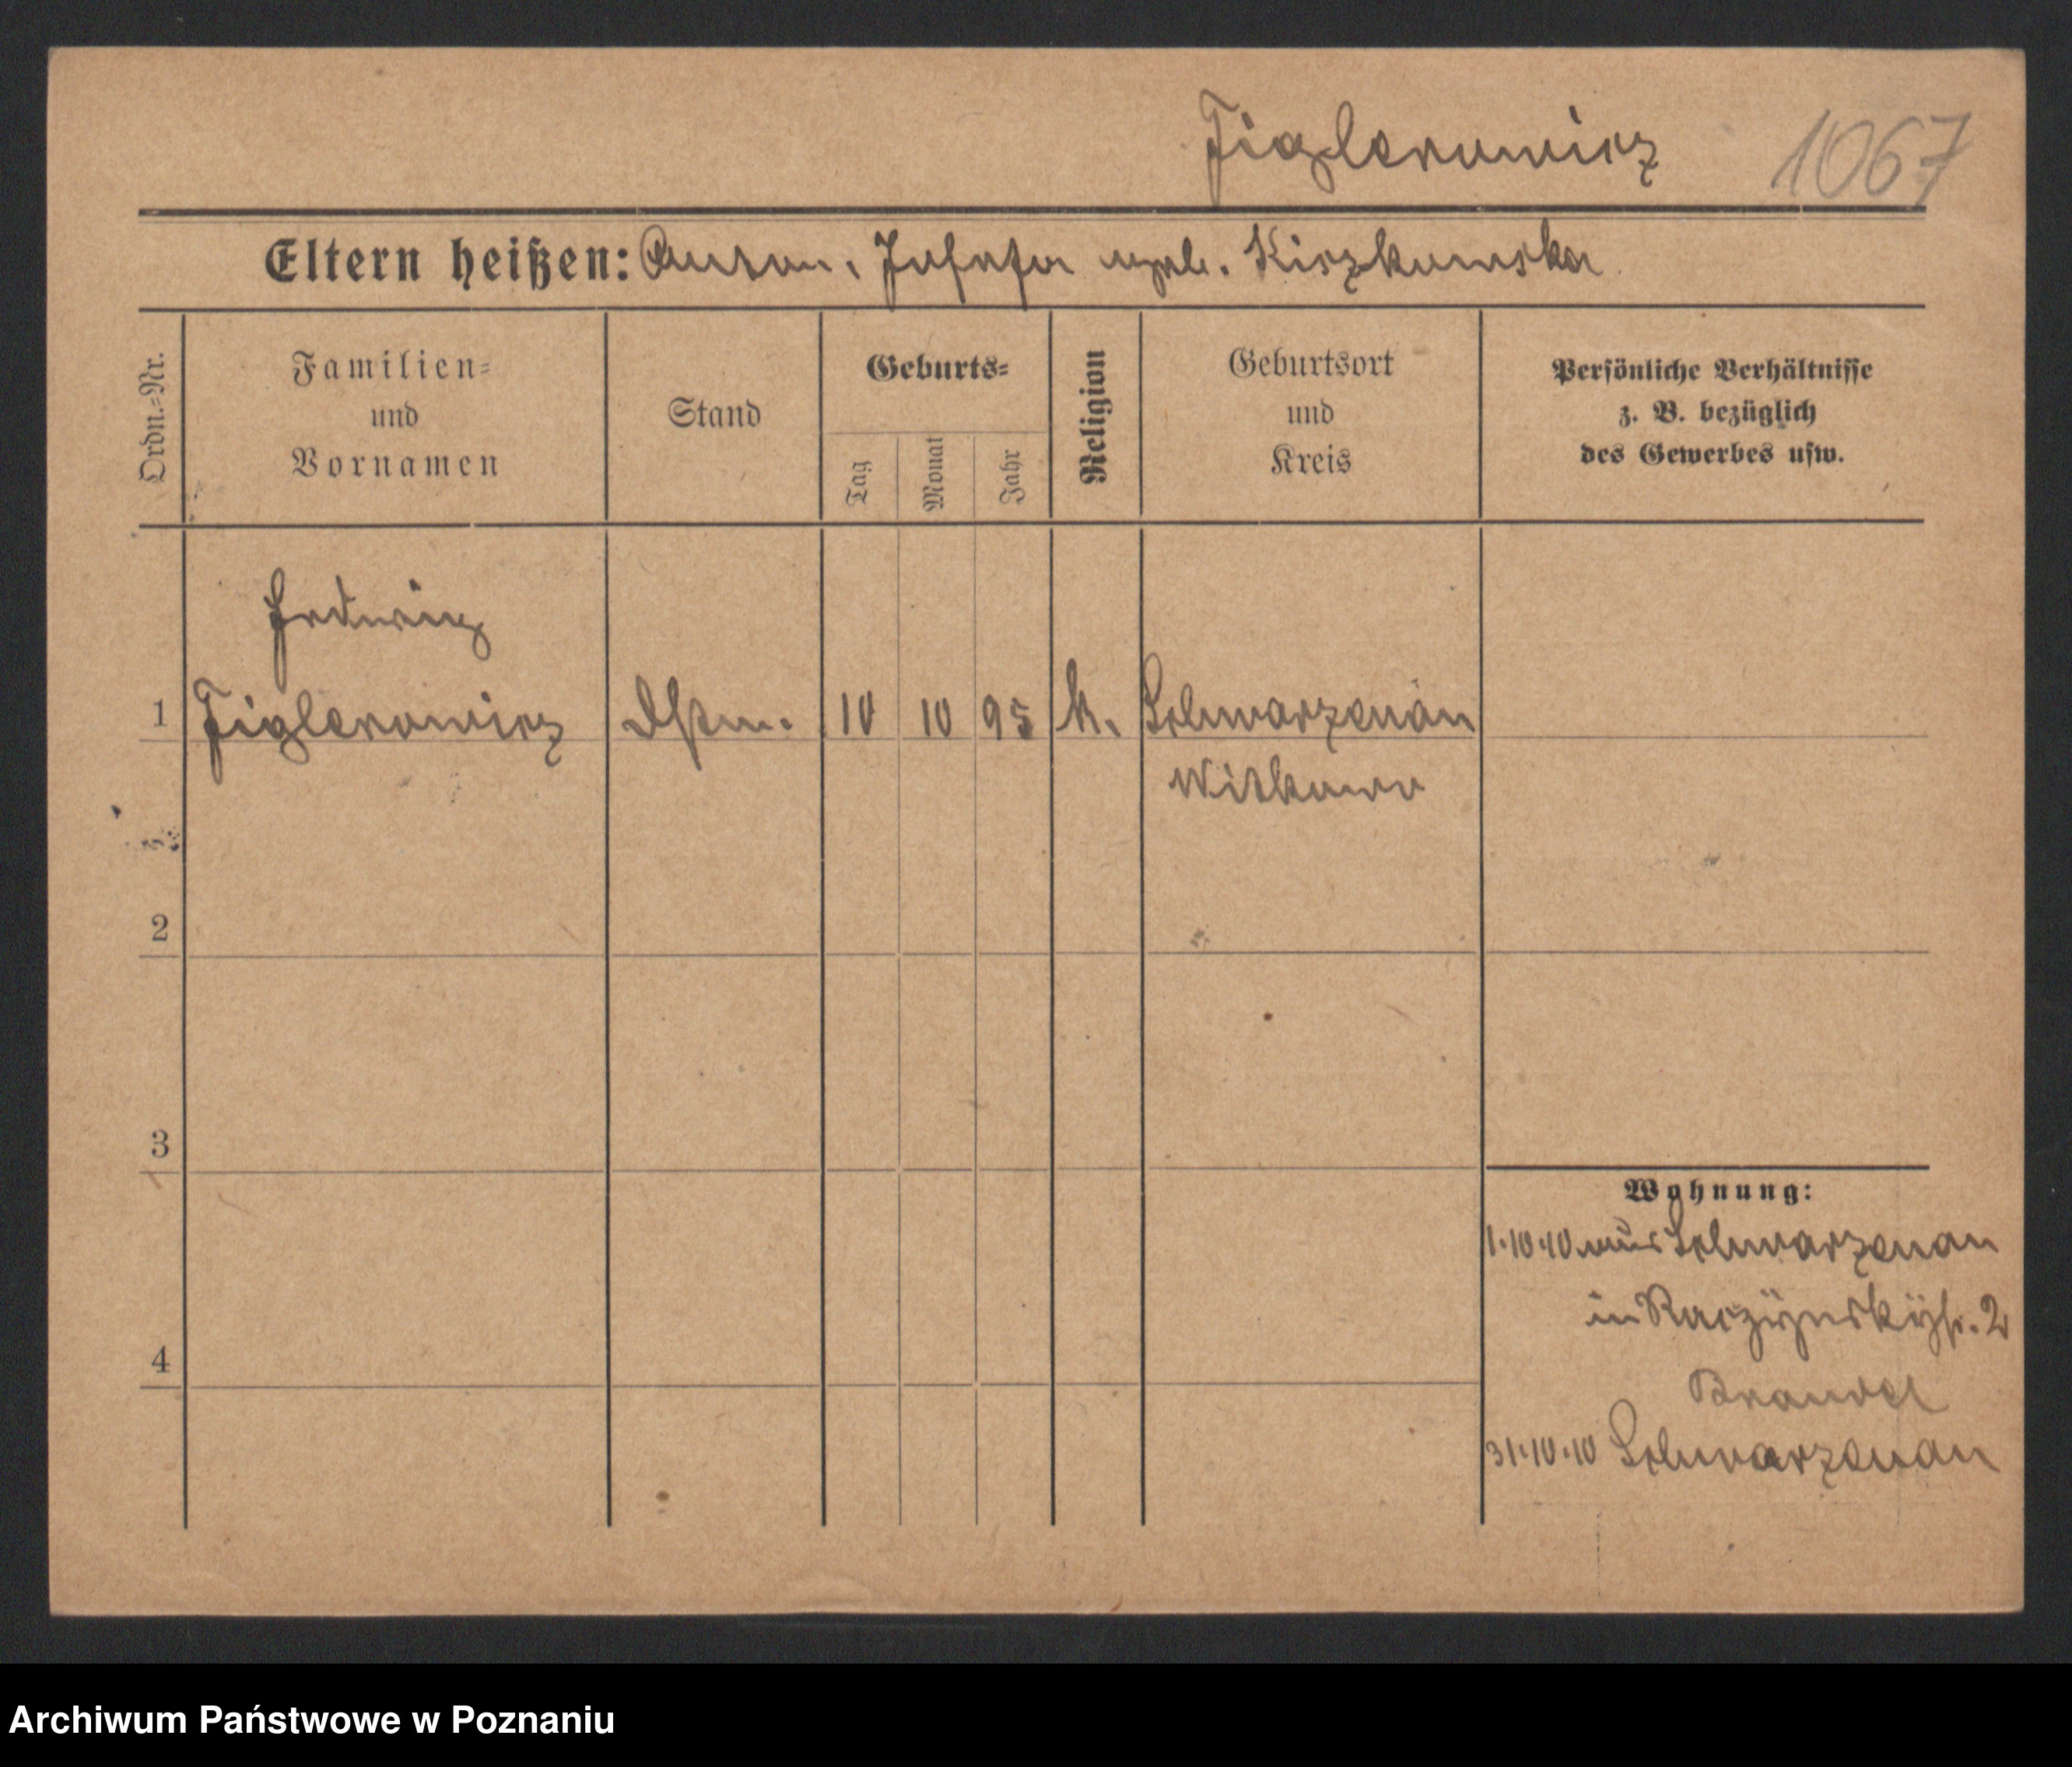 Figlerowicz 1067
Eltern heißen: Anton, Josefa geb. Kiszkowska
Ordn.-Nr.
Familien-
und
Vornamen
Stand
Geburts-
Tag
Monat
Jahr
Religion
Geburtsort
und
Kreis
Persönliche Verhältnisse
z. B. bezüglich
des Gewerbes usw.
Hedwig
1 Figlerowicz Dstm. 10 10 95 k. Schwarzenau
Witkowo
2
3
4
Wohnung:
1.10.10 aus Schwarzenau
in Raczynskystr. 2
31.10.10 Schwarzenau
Archiwum Państwowe w Poznaniu